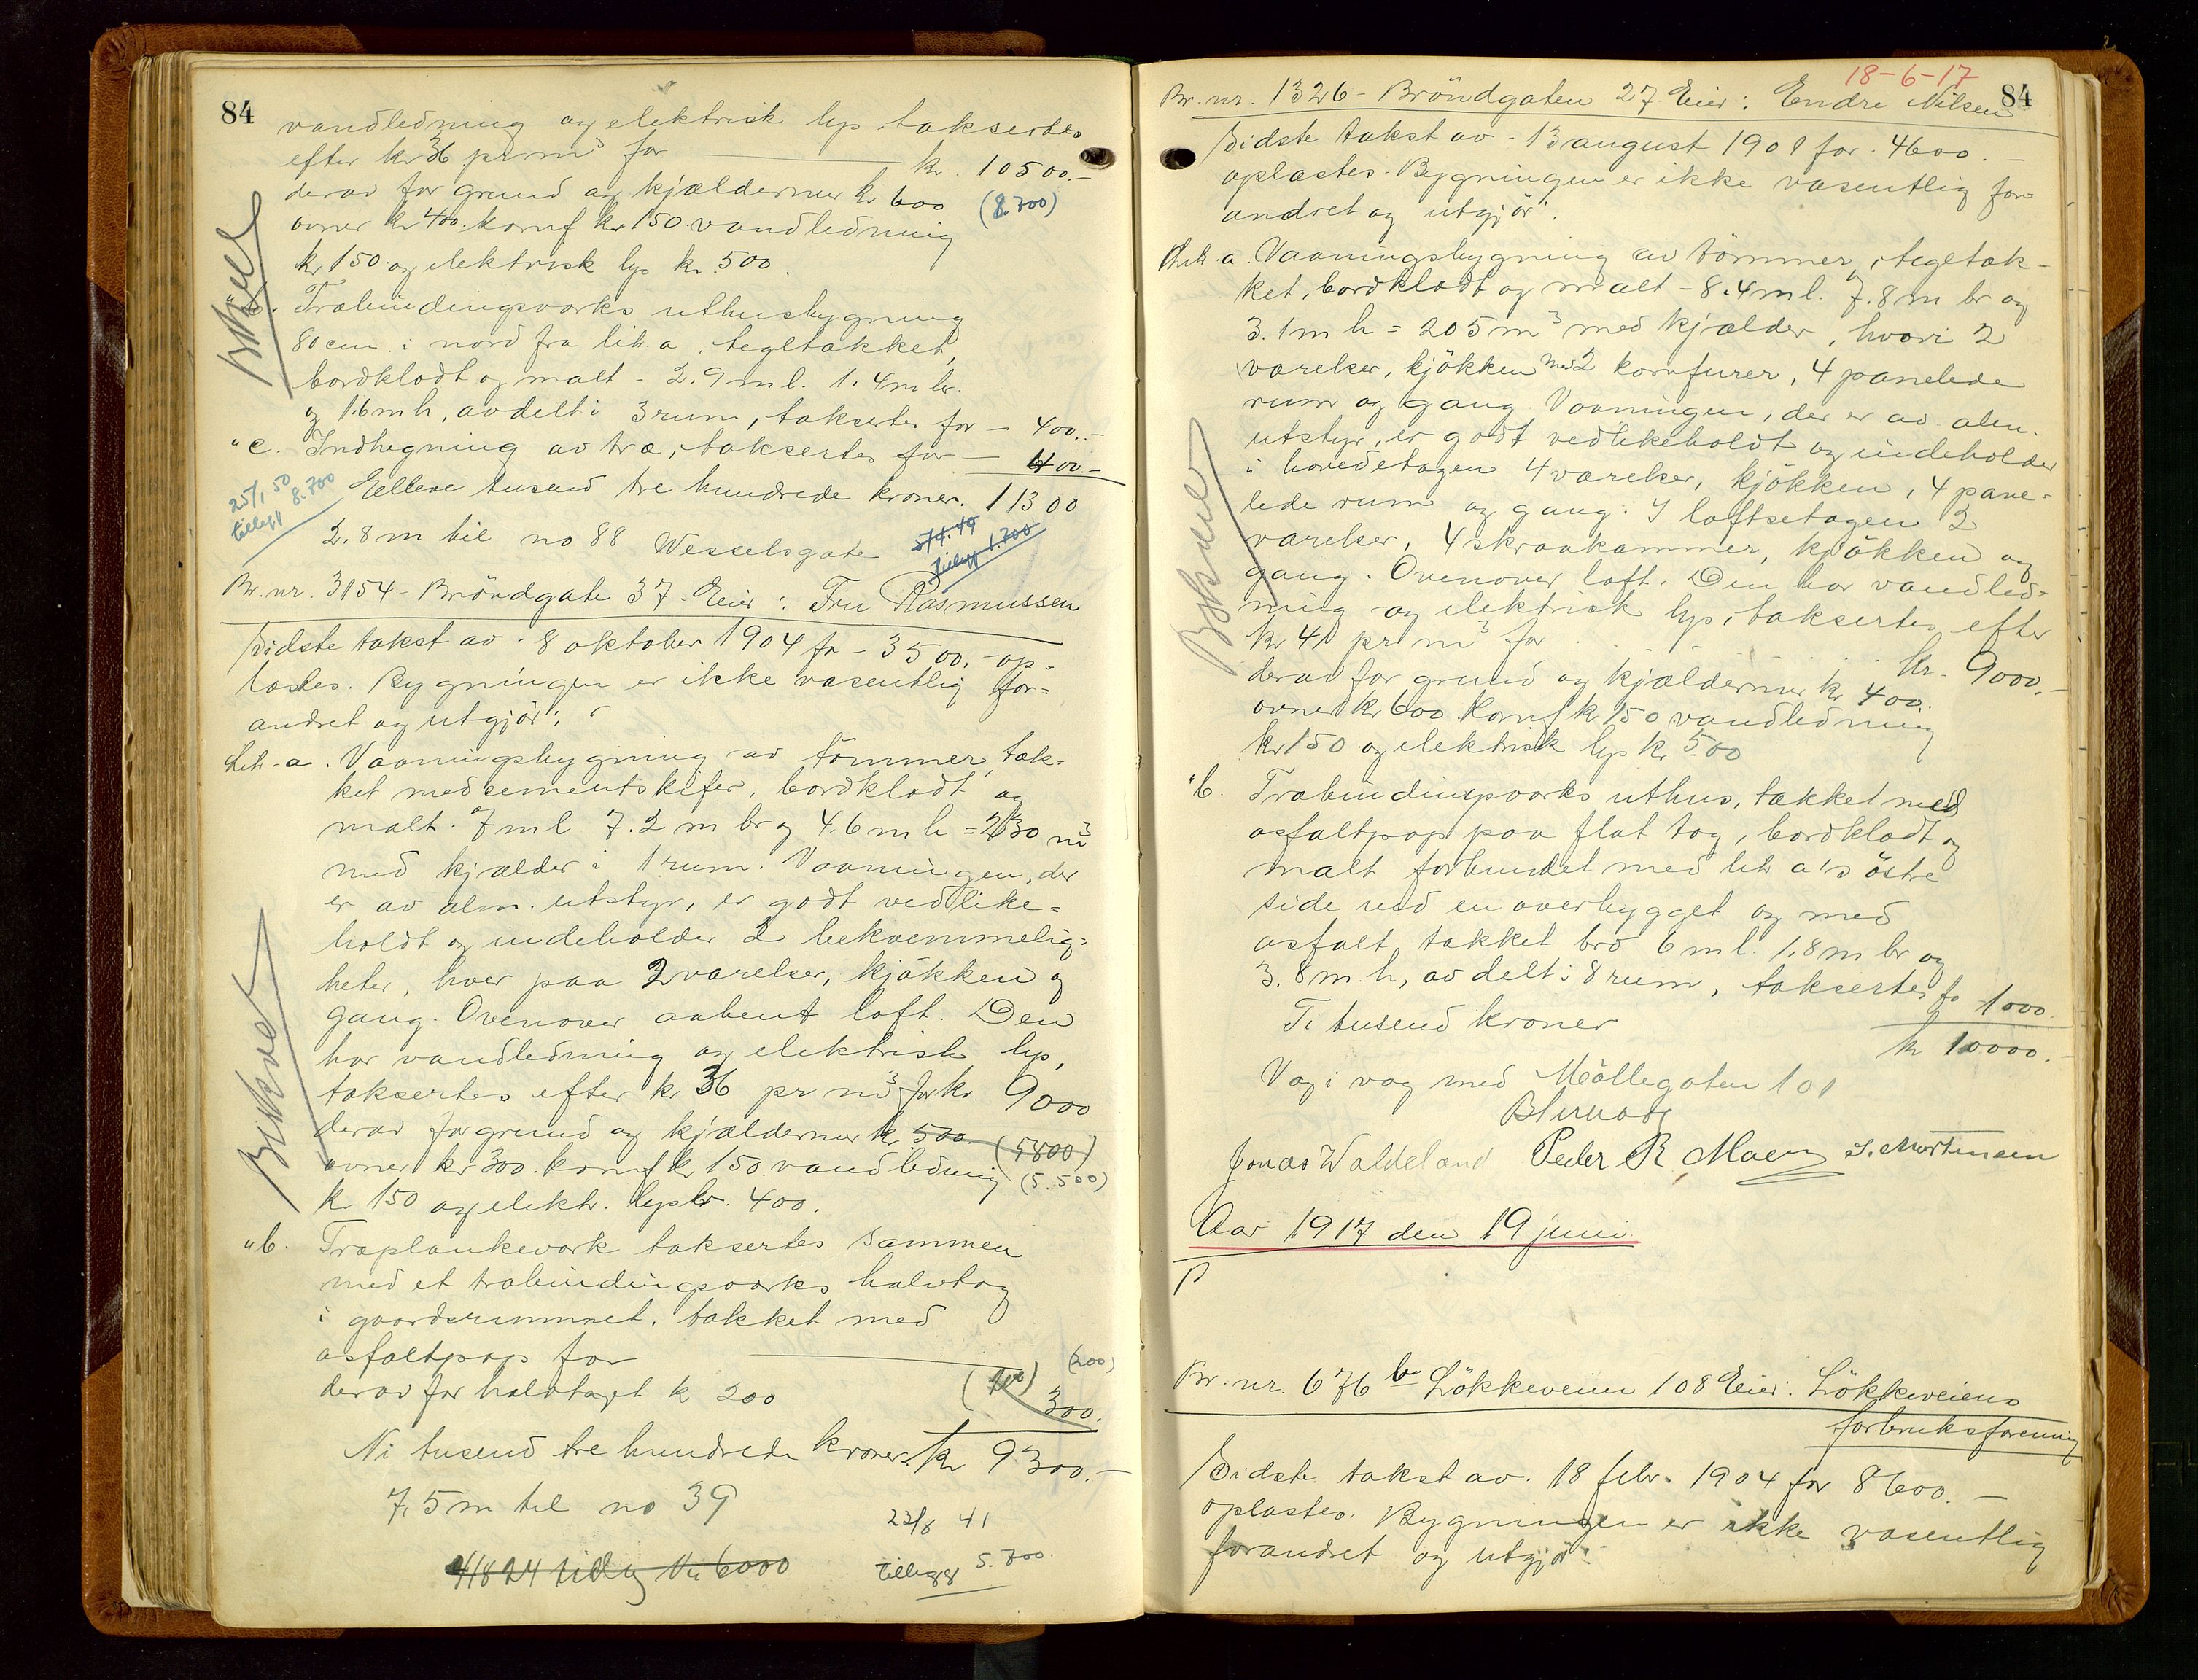 84
vandledning og elektrisk lys. taksertes
efter kr 36 pr m³ for kr. 10500.-
derav for grund og kjældermur kr 600 (8.700)
ovner kr 400. komf kr 150. vandledning
kr 150. og elektrisk lys kr. 500.
Træbindingsværks uthusbygning
80 cm. i nord fra lit. a, tegltækket,
bordklædt og malt - 2.9 m l. 1.4 m br.
og 1.6 m h, avdelt i 3 rum, taksertes for - 400.-
" c. Indhegning av træ, taksertes for - 400.-
Elleve tusend tre hundrede kroner. 11300
25/1 50
tillegg 8.700
2.8 m til no 88 Wesselsgate
tillegg 1.700
Br. nr. 3154 - Bröndgate 37. Eier: Fru Rasmussen
Sidste takst av - 8 oktober 1904 for - 3500.- op-
læstes. Bygningen er ikke væsentlig for=
andret og utgjör:
Lit. a. Vaaningsbygning av tömmer, tæk-
ket med sementskifer, bordklædt og
malt. 7 m l 7.2 m br og 4.6 m h = 230 m³
med kjælder i 1 rum. Vaaningen, der
er av alm. utstyr, er godt vedlike=
holdt og indeholder 2 bekvemmelig=
heter, hver paa 2 værelser, kjökken og
gang. Ovenover aabent loft. Den
har vandledning og elektrisk lys,
taksertes efter kr 36 pr m³ for kr. 9000
derav for grund og kjældermur kr 500. (5800)
ovner kr 300. komf kr 150. vandledning (5.500)
kr 150 og elektr. lys kr. 400.
" b. Træplankeværk taksertes sammen
med et træbindingsværks halvtag
i gaardsrummet, tækket med
asfaltpap for (200)
derav for halvtaget kr 200 300.
Ni tusend tre hundrede kroner. kr 9300.-
7,5 m til no 39
23/8 41
tillegg 5.700.
18-6-17
84
Br. nr. 1326 - Bröndgaten 27. Eier: Endre Nilsen
Sidste takst av - 13 august 1901 for - 4600.-
oplæstes. Bygningen er ikke væsentlig for-
andret og utgjör:
Lit. a. Vaaningsbygning av tömmer, tegltæk-
ket, bordklædt og malt - 8.4 m l. 7.8 m br og
3.1 m h = 205 m³ med kjælder, hvori 2
værelser, kjökken med 2 komfurer, 4 panelede
rum og gang. Vaaningen, der er av alm.
utstyr, er godt vedlikeholdt og indeholder
i hovedetagen 4 værelser, kjökken, 4 pane=
lede rum og gang. I loftsetagen 3
værelser, 4 skraakammer, kjökken og
gang. Ovenover loft. Den har vandled=
ning og elektrisk lys, taksertes efter
kr 41 pr m³ for kr. 9000.-
derav for grund og kjældermur kr 400.
ovner kr 600 komf kr 150 vandledning
kr 150 og elektrisk lys kr. 500
" b. Træbindingsværks uthus, tækket med
asfaltpap paa flat tag, bordklædt og
malt forbundet med lit a's östre
side ved en overbygget og med
asfalt, tækket bro 6 m l. 1.8 m br og
3.8 m. h, avdelt i 8 rum, taksertes for 1000.
Ti tusend kroner kr 10000.-
Væg i væg med Möllegaten 101
Jonas Waldeland Peder R. Moen S. Mortensen
Aar 1917 den 19 juni
Br. nr. 676 b Lökkeveien 108 Eier: Lökkeveiens
forbruksforening
Sidste takst av. 18 febr. 1904 for 8600.-
oplæstes. Bygningen er ikke væsentlig
forandret og utgjör: